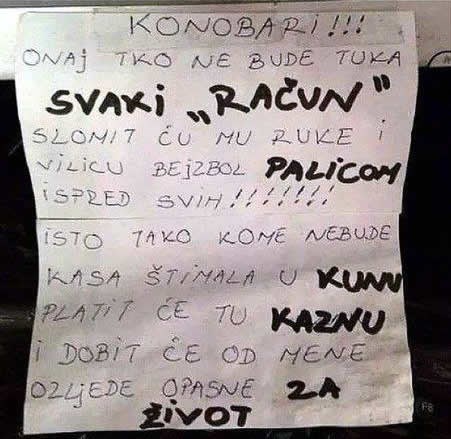 KONOBARI!!!
ONAJ TKO NE BUDE TUKA
SVAKI „RAČUN“
SLOMIT ĆU MU RUKE I
VILICU BEJZBOL PALICOM
ISPRED SVIH!!!!!!!
ISTO TAKO KOME NEBUDE
KASA ŠTIMALA U KUNU
PLATIT ĆE TU KAZNU
I DOBIT ĆE OD MENE
OZLJEDE OPASNE ZA
ŽIVOT
F8